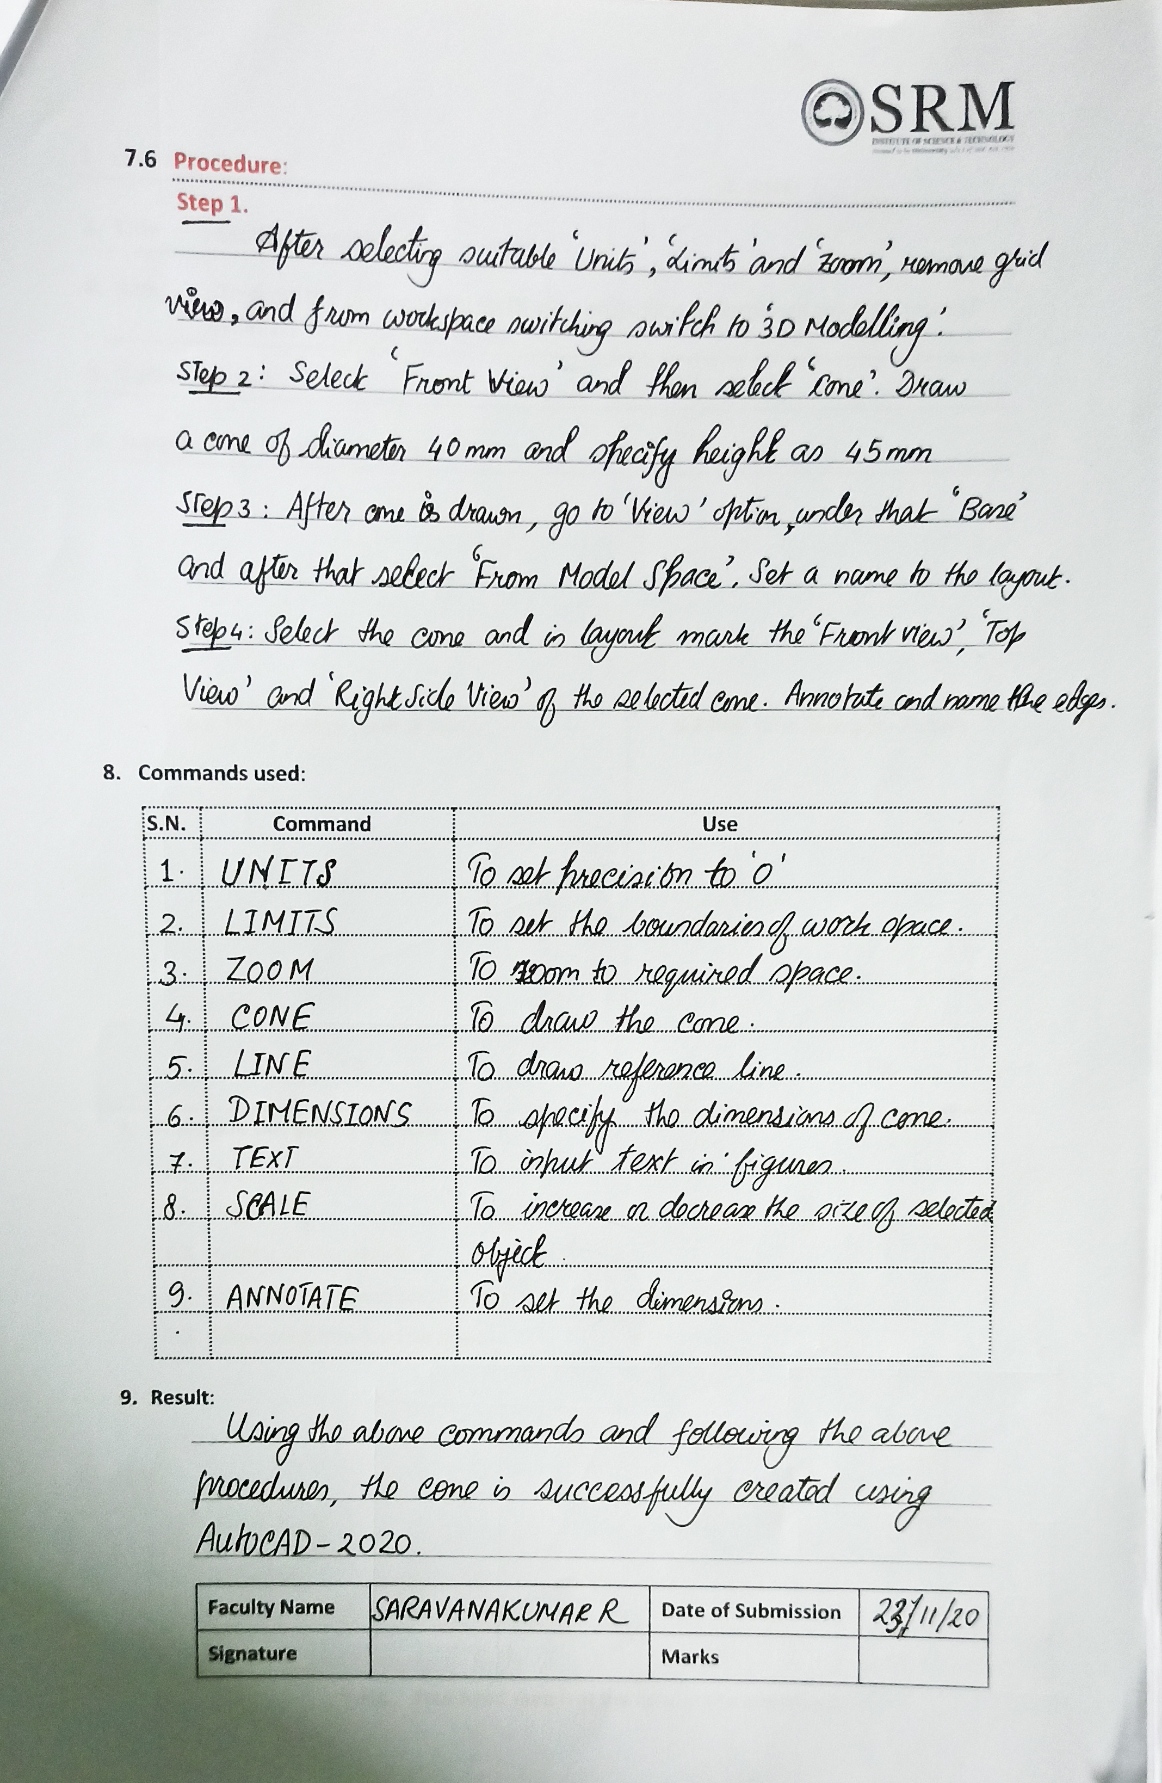 SRM
INSTITUTE OF SCIENCE & TECHNOLOGY
7.6 Procedure:
Step 1.
After selecting suitable 'Units', 'Limits' and 'Zoom', remove grid
view, and from workspace switching switch to '3D Modelling'.
Step 2: Select 'Front View' and then select 'cone'. Draw
a cone of diameter 40mm and specify height as 45mm
Step 3: After cone is drawn, go to 'View' option, under that 'Base'
and after that select 'From Model Space'. Set a name to the layout.
Step 4: Select the cone and in layout mark the 'Front view', 'Top
View' and 'Right Side View' of the selected cone. Annotate and name the edges.
8. Commands used:
S.N. Command Use
1. UNITS To set precision to '0'
2. LIMITS To set the boundaries of work space.
3. ZOOM To zoom to required space.
4. CONE To draw the cone.
5. LINE To draw reference line.
6. DIMENSIONS To specify the dimensions of cone.
7. TEXT To input text in figures.
8. SCALE To increase or decrease the size of selected
object.
9. ANNOTATE To set the dimensions.
9. Result:
Using the above commands and following the above
procedures, the cone is successfully created using
AutoCAD-2020.
Faculty Name SARAVANAKUMAR R Date of Submission 23/11/20
Signature Marks